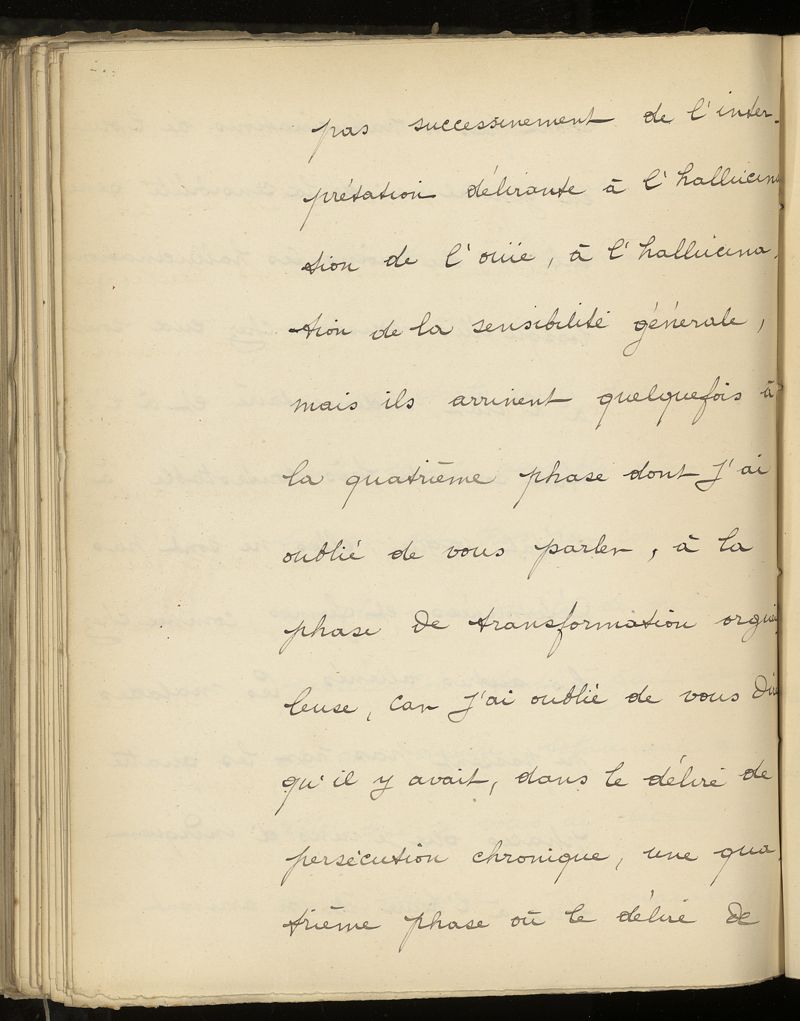 pas successivement de l'inter-
prétation délirante à l'hallucina
tion de l'ouïe, à l'hallucina-
tion de la sensibilité générale,
mais ils arrivent quelquefois à
la quatrième phase dont j'ai
oublié de vous parler, à la
phase de transformation orgueil
leuse, car j'ai oublié de vous dire
qu'il y avait, dans le délire de
persécution chronique, une qua-
trième phase où le délire de